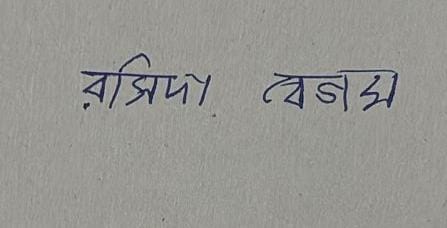 রসিদা বেগম